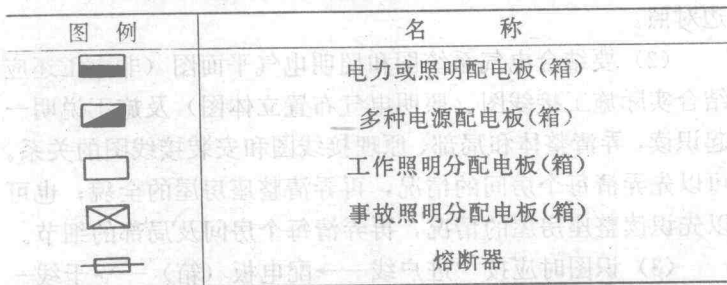 图 例 名 称
电力或照明配电板(箱)
多种电源配电板(箱)
工作照明分配电板(箱)
事故照明分配电板(箱)
熔断器